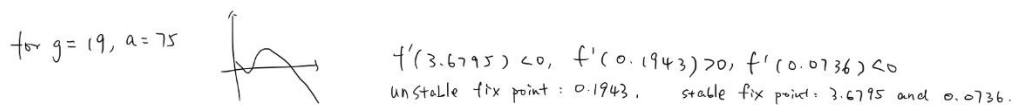 for g = 19, a = 75
f'(3.6795) <0, f'(0.1943)>0, f'(0.0736)<0
unstable fix point : 0.1943. stable fix point: 3.6795 and 0.0736.